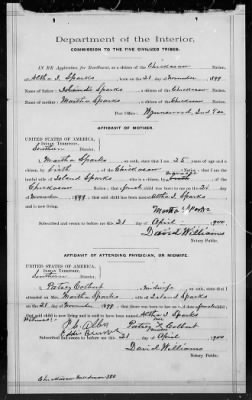 Department of the Interior.
COMMISSION TO THE FIVE CIVILIZED TRIBES.
IN RE Application for Enrollment, as a citizen of the Chickasaw Nation,
of Altha I. Sparks, born on the 21 day of November, 1899
Name of Father: Sparks a citizen of the Chickasaw Nation.
Name of mother: Martha Sparks a citizen of the Chickasaw Nation.
Post Office: Wynnewood, Ind Ter
AFFIDAVIT OF MOTHER.
UNITED STATES OF AMERICA,
INDIAN TERRITORY,
Southern District.
I, Martha Sparks, on oath, state that I am 25 years of age and a
citizen by birth, of the Chickasaw Nation; that I am the
lawful wife of Island Sparks, who is a citizen, by
Chickasaw Nation; that a female child was born to me on 21 day
of November, 1899; that said child has been named Altha I. Sparks
and is now living.
Martha Sparks
Subscribed and sworn to before me this 21 day of April, 1900
David Williams
Notary Public.
AFFIDAVIT OF ATTENDING PHYSICIAN, OR MIDWIFE.
UNITED STATES OF AMERICA,
INDIAN TERRITORY,
Southern District.
I, Patsey Colbert, a midwife, on oath, state that I
attended on Mrs. Martha Sparks, wife of Island Sparks
on the 21 day of November, 1899; that there was born to her on said date a female child;
that said child is now living and is said to have been named Altha I Sparks
Witness:
Patsey X Colbert
Subscribed and sworn to before me this 21 day of April, 1900
David Williams
Notary Public.